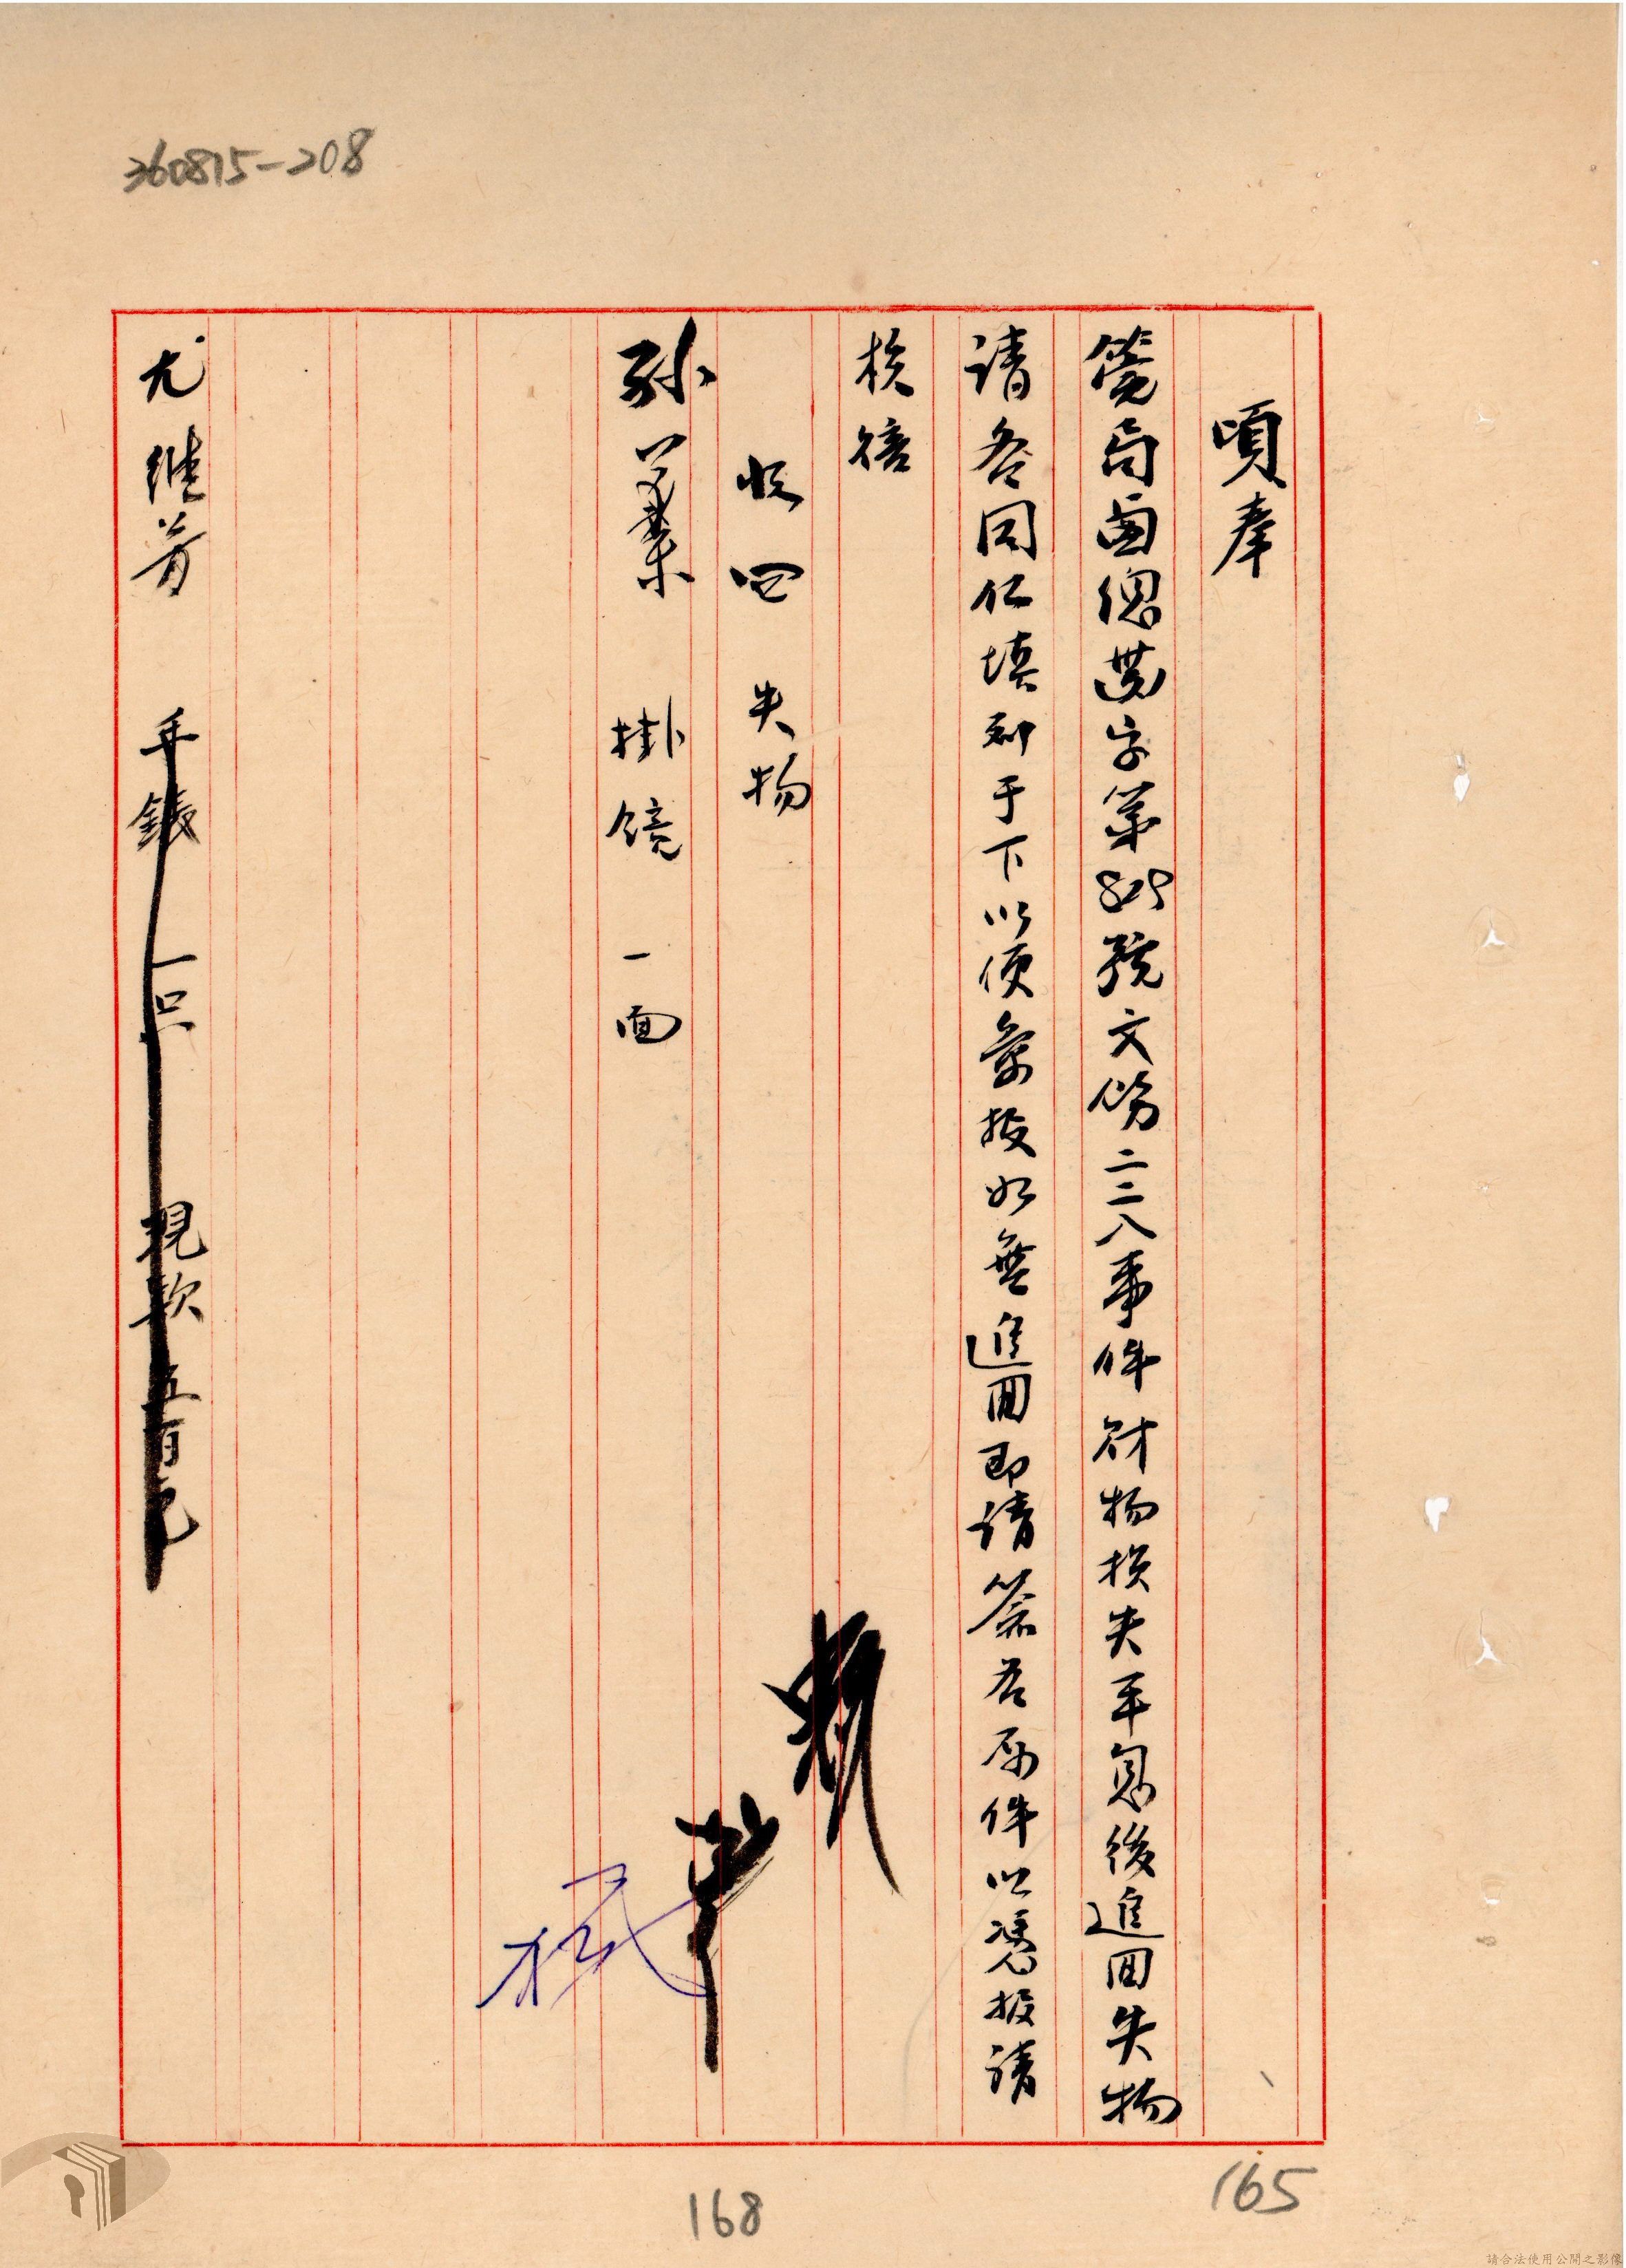 360815-208
頃奉
管局函總業字第825號文份二二八事件財物損失平息後追回失物
請各同仁填列于下以便彙報如無追回即請簽名原件以憑報請
核備
收回失物
孫 掛镜一面
尤继芳 手錶一只 現款五百元
165
168
請合法使用公開之影像